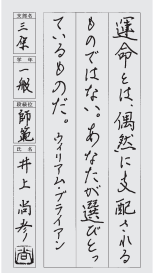 運命とは、偶然に支配される
ものではない。あなたが選びとっ
ているものだ。
ウィリアム・ブライアン
支部名
三条
学年
一般
段級位
師範
氏名
井上尚彦